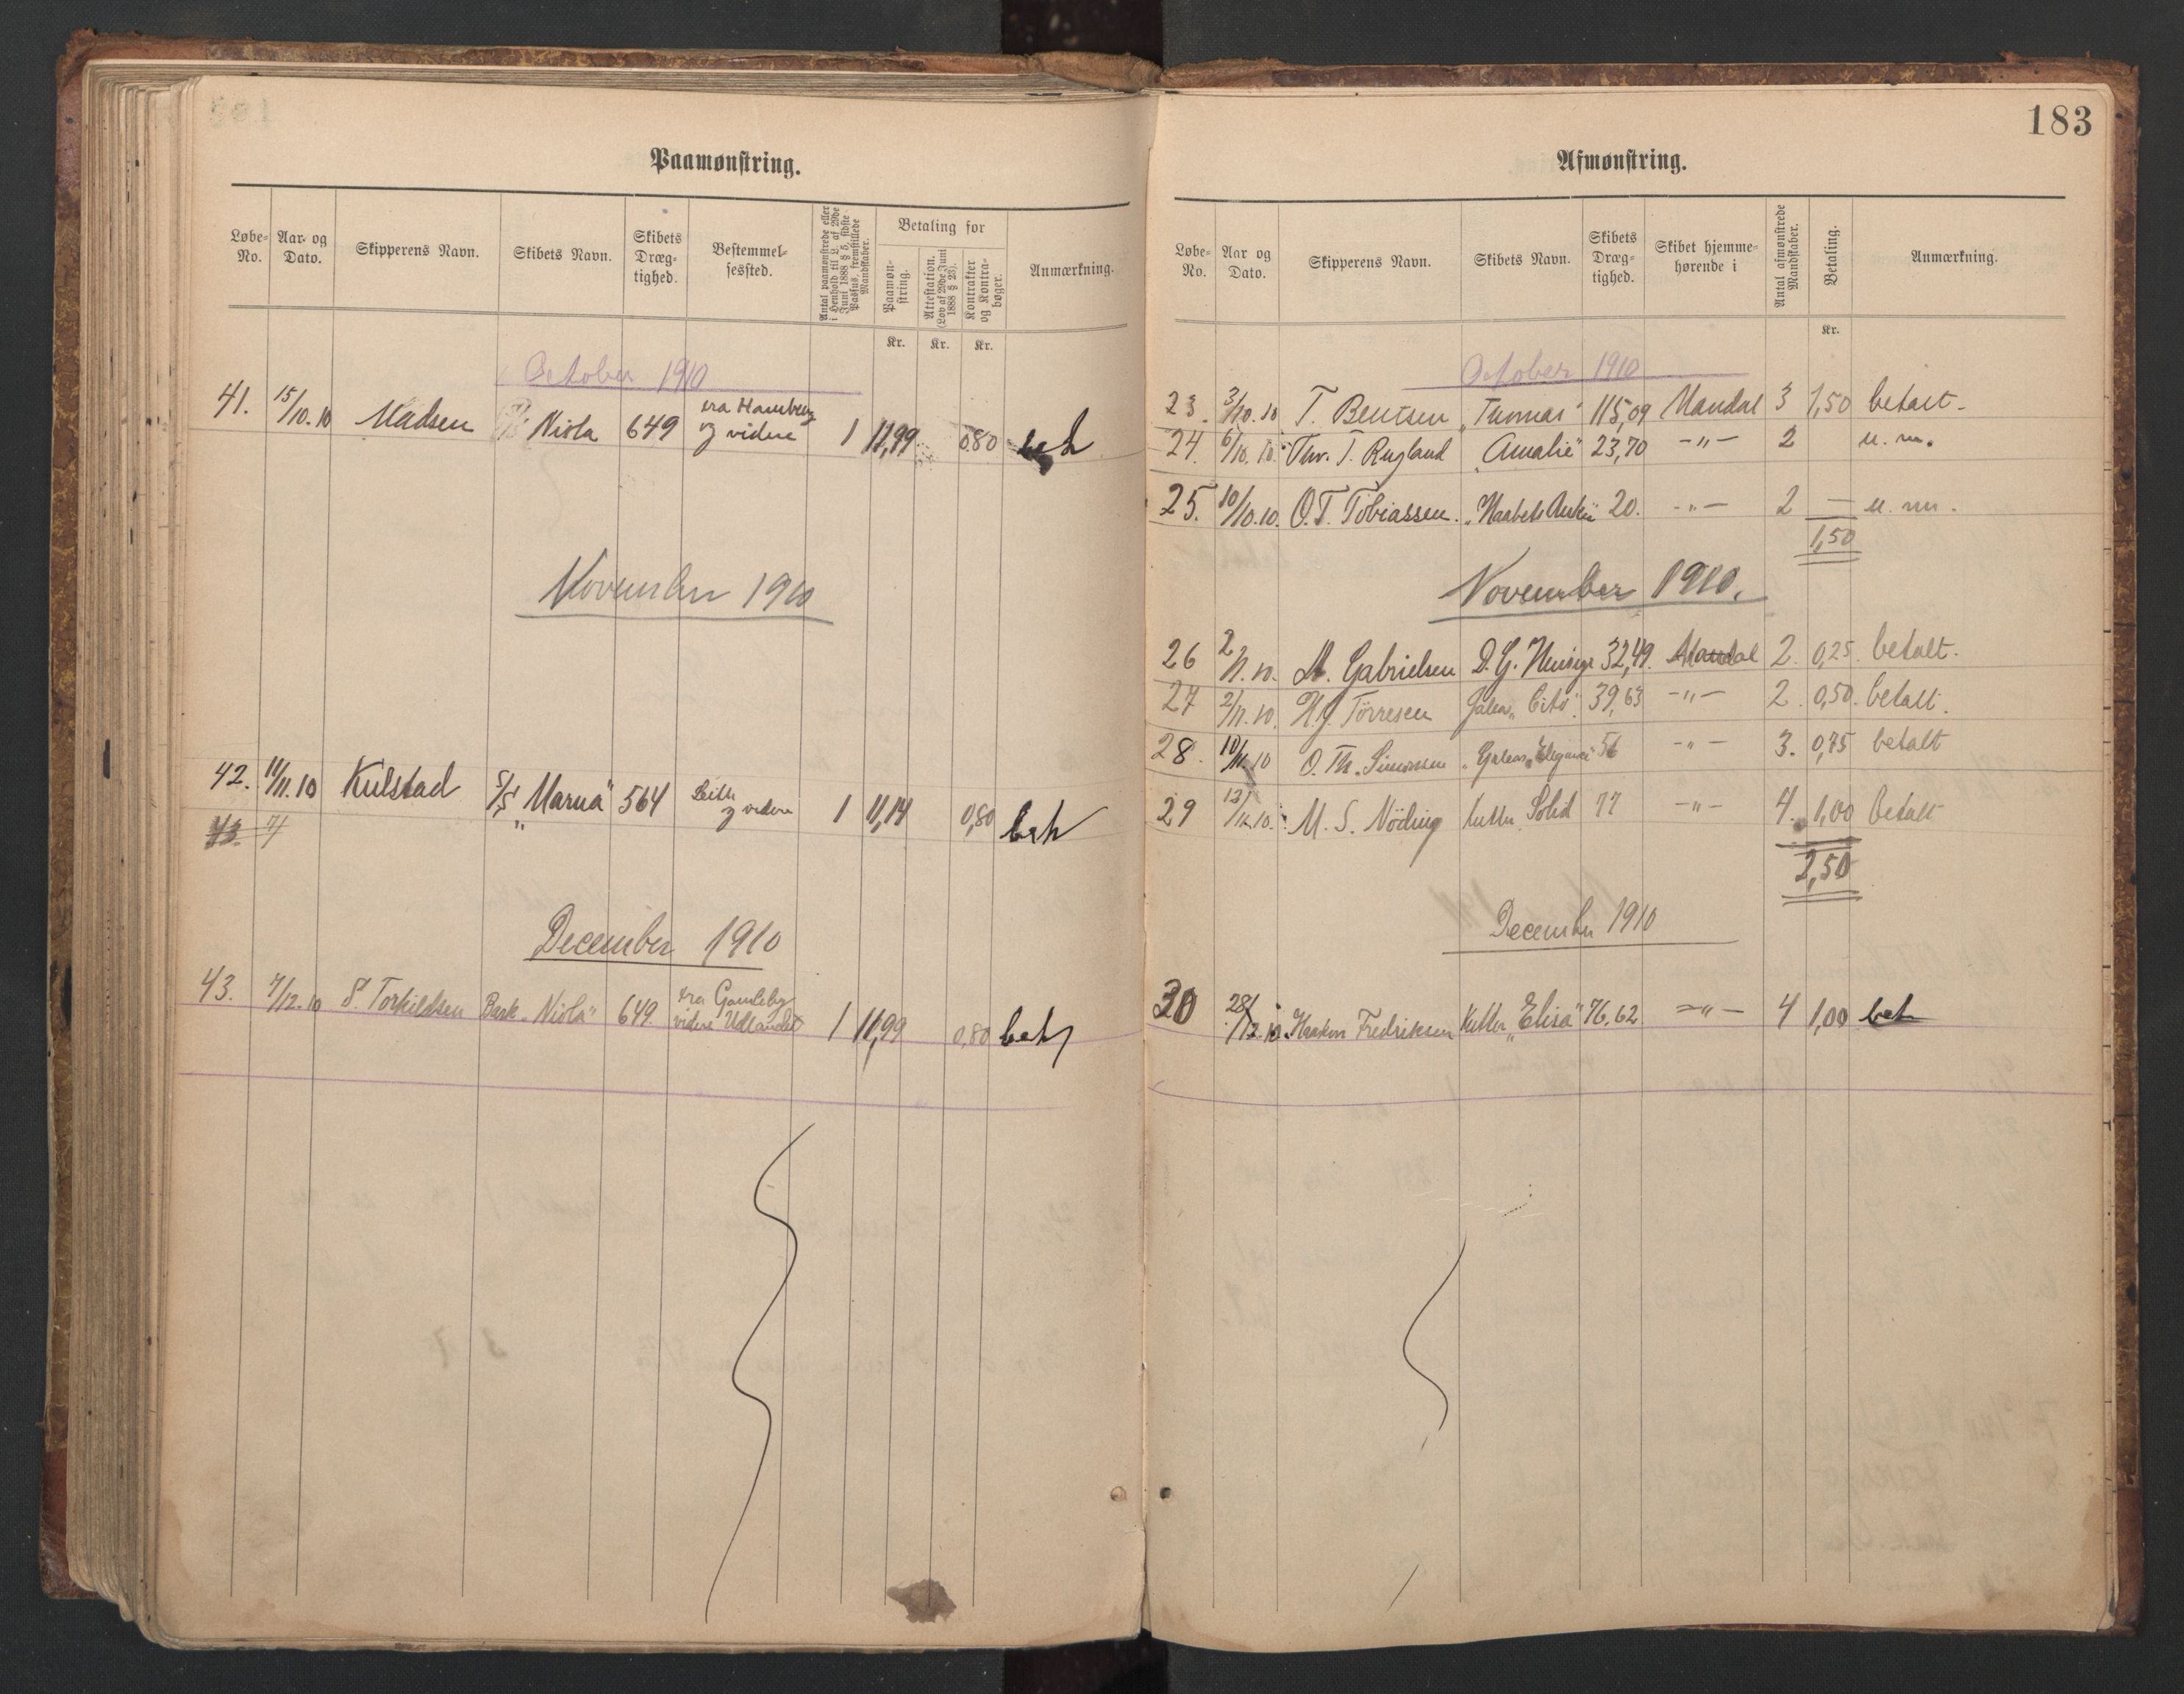 Paamønstring.
Løbe-No. Aar- og Dato. Skipperens Navn. Skibets Navn. Skibets Dræg-tighed. Bestemmel-sessted. Antal paamønstrede eller i Henhold til L. af 29de Juni 1888 § 5, sidste Passus, fremstillede Mandskaber. Betaling for Paamøn-string. Attestation. (Lov af 29de Juni 1888 § 23). Kontrakter og Kontra-bøger. Anmærkning.
Kr. Kr. Kr.
October 1910
41. 15/10.10 Madsen Niola 649 fra Hamburg og videre 1 11,99 0.80 bet
November 1910
42. 11/11.10 Kulstad S/S "Marna" 564 Leith og videre 1 11,14 0,80 bet
43. 4/
December 1910
43. 7/12.10 S. Torkildsen Bark "Niola" 649. fra Gamleby videre Udlandet 1 11,99 0,80 bet
183
Afmønstring.
Løbe-No. Aar og Dato. Skipperens Navn. Skibets Navn. Skibets Dræg-tighed. Skibet hjemme-hørende i Antal afmønstrede Mandskaber. Betaling. Anmærkning.
Kr.
October 1910
23. 3/10.10 T. Bentsen "Thomas" 115,09 Mandal 3 1,50 betalt.
24. 6/10.10. Thv. T. Rugland "Amalie" 23,70 -"- 2 u. m.
25. 10/10.10. O.T. Tobiassen. "Haabets Anker" 20. -"- 2 — u. m.
1,50
November 1910.
26 2/11.10. M. Gabrielsen D.G. 32,49. Mandal 2. 0,25. betalt.
27 2/11.10. H.J. Tørresen Galea "Cito". 39,63 -"- 2. 0,50. betalt.
28. 10/11.10 O. Th. Simonsen Galeas "Elegance" 56 -"- 3. 0,75 betalt
29 12/11.10. M. S. Nöding kutter Solid 77 -"- 4. 1,00 betalt
2,50
December 1910
30 28/12.10. Haakon Fredriksen Kutter "Elisa" 76,62. -"- 4 1,00 bet